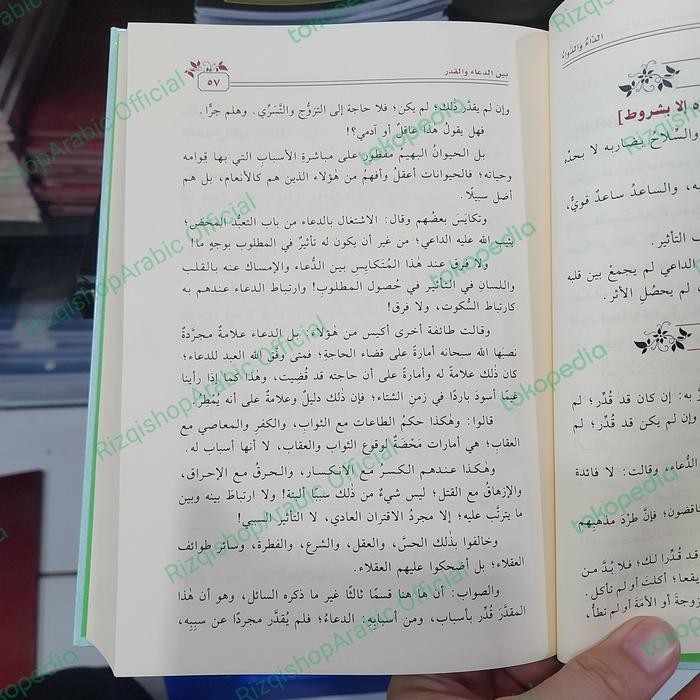 الدَّاءُ والدَّواءُ
ه إلا بشروط]
والسِّلاحُ بضاربه لا بحدِّه
به، والساعدُ ساعدٌ قويٌّ،
ف التأثير.
الداعي لم يجمعْ بين قلبه
، لم يحصُلِ الأثر.
به: إن كان قد قُدِّر؛ لم
وإن لم يكن قد قُدِّر؛ لم
الدُّعاء، وقالت: لا فائدة
قضون؛ فإنَّ طَرْدَ مذهبِهم
قد قُدِّرا لك؛ فلا بُدَّ من
يقعا؛ أكلتَ أو لم تأكل.
زوجةَ أو الأمَةَ أو لم تطأ،
بين الدعاء والقدر
٥٧
وإن لم يقدَّر ذلك؛ لم يكن؛ فلا حاجة إلى التزوُّج والتَّسَرِّي. وهلم جرًّا.
فهل يقولُ هٰذا عاقلٌ أو آدمي؟!
بل الحيوانُ البهيمُ مفطور على مباشرةِ الأسباب التي بها قِوامه
وحياته؛ فالحيوانات أعقلُ وأفهمُ من هؤلاء الذين هم كالأنعام، بل هم
أضل سبيلًا.
وتكايَسَ بعضُهم وقال: الاشتغال بالدعاء من باب التعبُّد المحض؛
يثيب الله عليه الداعي؛ من غير أن يكون له تأثيرٌ في المطلوب بوجهٍ ما!
ولا فرق عند هٰذا المُتَكايِس بين الدُّعاء والإمساك عنه بالقلب
واللسان في التأثير في حُصول المطلوب! وارتباط الدعاء عندهم به
كارتباط السُّكوت، ولا فرق!
وقالت طائفة أخرى أكيس من هؤلاء: بل الدعاء علامةٌ مجرَّدةٌ
نصبَها الله سبحانه أمارةً على قضاء الحاجة؛ فمتى وفَّق الله العبد للدعاء؛
كان ذلك علامة له وأمارةً على أن حاجته قد قُضيت، وهٰذا كما إذا رأينا
غيمًا أسودَ باردًا في زمن الشتاء؛ فإن ذلك دليلٌ وعلامةٌ على أنه يُمْطِرُ.
قالوا: وهٰكذا حكمُ الطاعات مع الثواب، والكفر والمعاصي مع
العقاب؛ هي أمارات مَحْضَةٌ لوقوع الثواب والعقاب، لا أنها أسباب له.
وهكذا عندهم الكسرُ مع الانكسار، والحرقُ مع الإحراق،
والإزهاقُ مع القتل؛ ليس شيءٌ من ذلك سببًا ألبتة! ولا ارتباطَ بينه وبين
ما يترتَّب عليه؛ إلا مجردُ الاقتران العادي، لا التأثير السببي!
وخالفوا بذٰلك الحسَّ، والعقل، والشرع، والفطرة، وسائر طوائف
العقلاء؛ بل أضحكوا عليهم العقلاء.
والصواب: أن ها هنا قسمًا ثالثًا غير ما ذكره السائل، وهو أن هٰذا
المقدَّر قُدِّر بأسباب، ومن أسبابِهِ: الدعاءُ؛ فلم يُقدَّر مجردًا عن سببِهِ،
RizqishopArabic Official
tokopedia